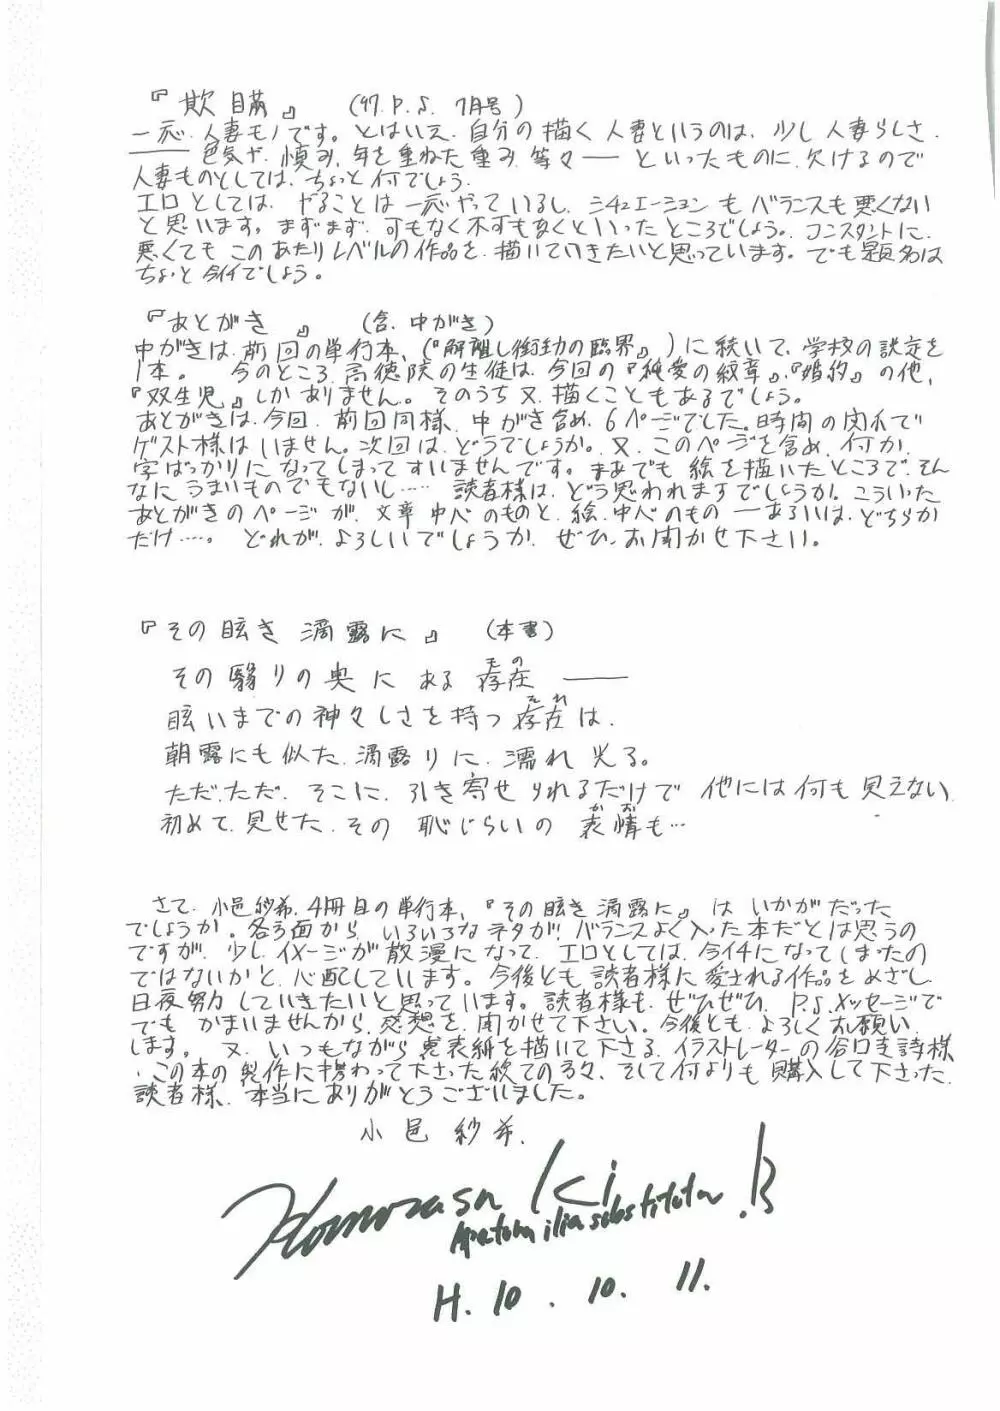 『欺瞞』 (97.P.S. 7月号)
一応、人妻モノです。とはいえ、自分の描く人妻というのは、少し人妻らしさ、
── 色気や、慎み、年を重ねた重み、等々── といったものに、欠けるので
人妻ものとしては、ちょっと何でしょう。
エロとしては、やることは一応やっているし、シチュエーションもバランスも悪くない
と思います。まずまず、可もなく不可もなくといったところでしょう。コンスタントに、
悪くてもこのあたりレベルの作品を、描いていきたいと思っています。でも題名は
ちょっと今イチでしょう。
『あとがき』 (含、中がき)
中がきは、前回の単行本、(『解離し衝動の臨界』)に続いて、学校の設定を
1本。 今のところ、高徳院の生徒は、今回の『純愛の紋章』、『婚約』の他、
『双生児』しかありません。そのうち又、描くこともあるでしょう。
あとがきは、今回、前回同様、中がき含め、6ページでした。時間の関係で
ゲスト様はいません。次回は、どうでしょうか。又、このページを含め、何か、
字ばっかりになってしまってすいませんです。まあでも絵を描いたところで、そん
なにうまいものでもないし…… 読者様は、どう思われますでしょうか。こういった
あとがきのページが、文章中心のものと、絵、中心のもの ──あるいは、どちらか
だけ……。 どれが、よろしいでしょうか、ぜひ、お聞かせ下さい。
『その眩き滴露に』 (本書)
その翳りの奥にある存在(もの) ──
眩いまでの神々しさを持つ存在(それ)は、
朝露にも似た、滴露りに、濡れ光る。
ただ、ただ、そこに、引き寄せられるだけで 他には何も見えない、
初めて、見せた、その 恥じらいの 表情(かお)も…
さて、小邑紗希、4冊目の単行本、『その眩き滴露に』は いかがだった
でしょうか。各方面から、いろいろなネタが、バランスよく入った本だとは思うの
ですが、少し、イメージが散漫になって、エロとしては、今イチになってしまったの
ではないかと、心配しています。今後とも、読者様に愛される作品をめざし、
日夜努力していきたいと思っています。読者様も、ぜひぜひ、P.S.メッセージで
でも かまいませんから、感想を、聞かせて下さい。今後とも、よろしくお願い
します。 又、いつもながら裏表紙を描いて下さる、イラストレーターの谷口詩様
、この本の製作に携わって下さった続ての方々、そして何よりも購入して下さった、
読者様、本当にありがとうございました。
小邑紗希.
Komurasa Ki .B
H.10.10.11.